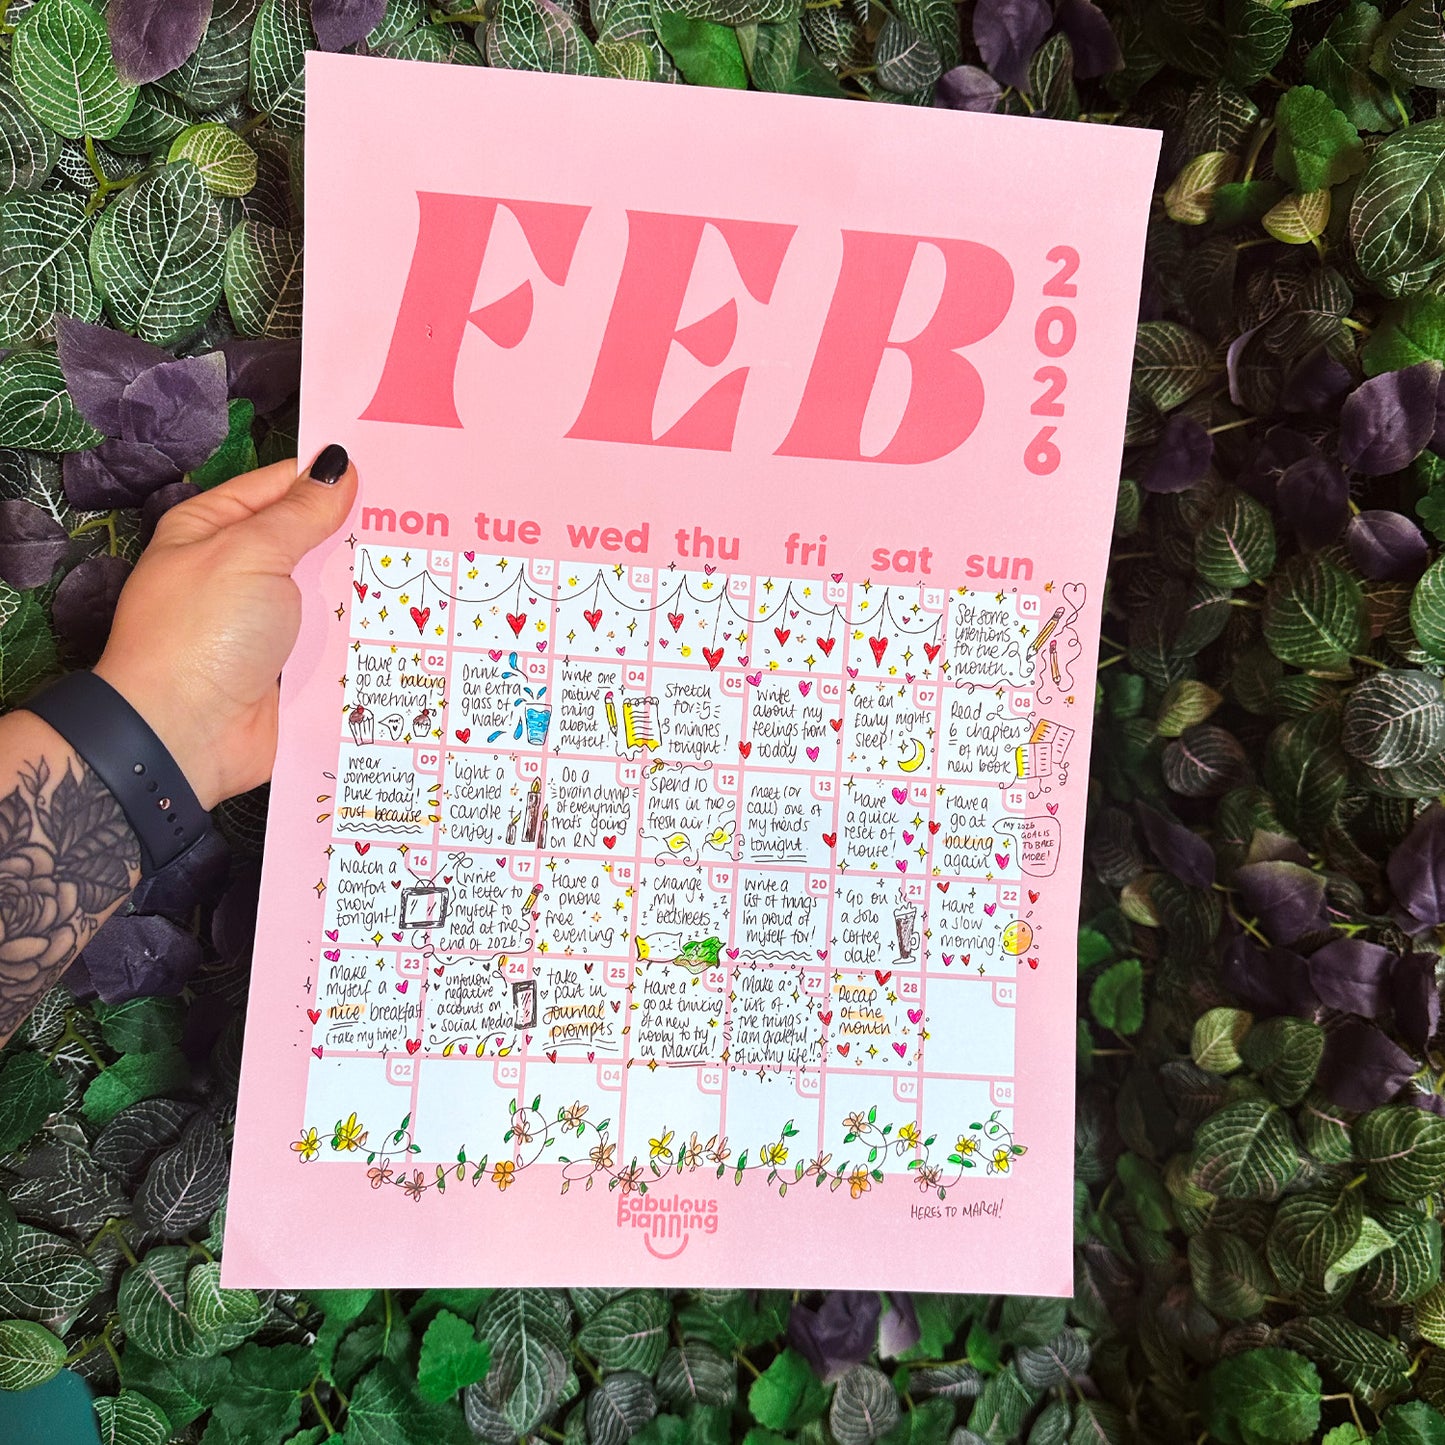 FEB
2026
mon tue wed thu fri sat sun
26 27 28 29 30 31 01
Set some
intentions
for the
month
02
Have a
go at baking
something!
03
Drink
an extra
glass of
water!
04
Write one
positive
thing
about
myself!
05
Stretch
for 5
minutes
tonight!
06
Write
about my
feelings from
today
07
Get an
Early nights
sleep!
08
Read
6 chapters
of my
new book
09
Wear
something
Pink today!
Just because
10
Light a
scented
candle +
enjoy.
11
Do a
brain dump
of everything
thats going
on RN
12
Spend 10
mins in the
fresh air!
13
meet (or
call) one of
my friends
tonight.
14
Have
a quick
reset of
House!
15
Have a
go at
baking
again
MY 2026
GOAL IS
TO BAKE
MORE!
16
Watch a
comfort
show
tonight!
17
Write
a letter to
myself to
read at the
end of 2026!
18
Have a
phone
free
evening
19
change
my
bedsheets
z z z
20
Write a
list of things
I'm proud of
myself for!
21
Go on
a solo
coffee
date!
22
Have
a slow
morning
23
Make
myself a
nice breakfast
(take my time!)
24
unfollow
negative
accounts on
Social Media
25
take
part in
journal
prompts
26
Have a
go at thinking
of a new
hobby to try
in March!
27
Make a
list of
the things
i am grateful
of in my life!!
28
Recap
of the
month!
01
02 03 04 05 06 07 08
Fabulous
Planning
HERE'S TO MARCH!